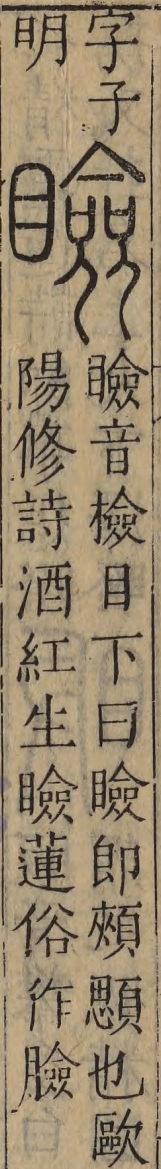 字子明
瞼
瞼音檢目下曰瞼即頰顋也歐
陽修詩酒紅生瞼蓮俗作臉